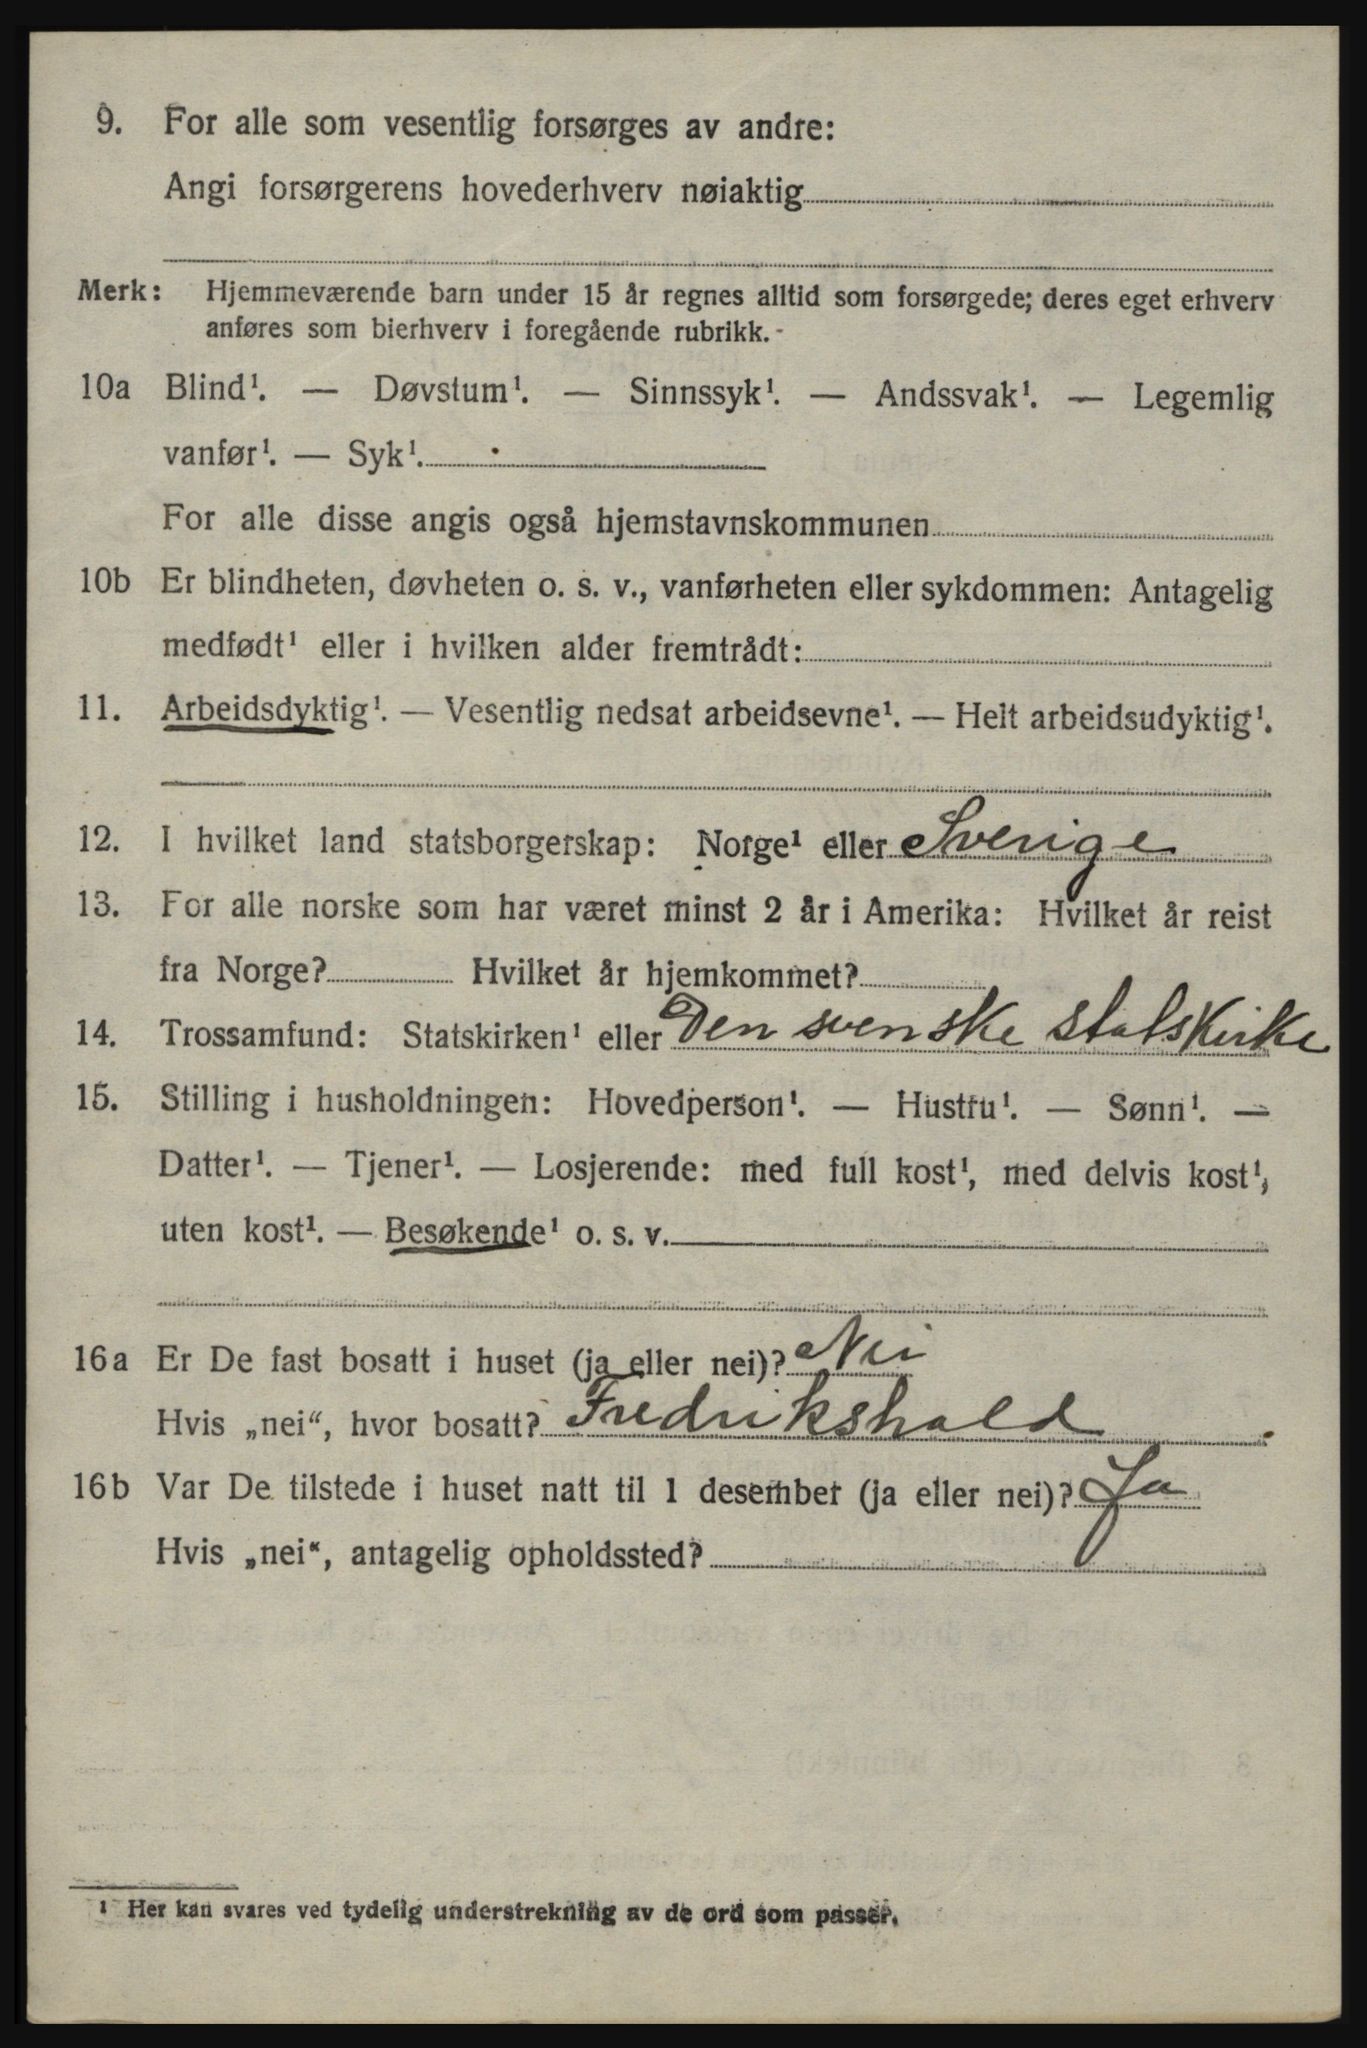 9. For alle som vesentlig forsørges av andre:
Angi forsørgerens hovederhverv nøiaktig
Merk: Hjemmeværende barn under 15 år regnes alltid som forsørgede; deres eget erhverv
anføres som bierhverv i foregående rubrikk.
10a Blind¹. — Døvstum¹. — Sinnssyk¹. — Andssvak¹. — Legemlig
vanfør¹. — Syk¹.
For alle disse angis også hjemstavnskommunen
10b Er blindheten, døvheten o. s. v., vanførheten eller sykdommen: Antagelig
medfødt¹ eller i hvilken alder fremtrådt:
11. Arbeidsdyktig¹. — Vesentlig nedsat arbeidsevne¹. — Helt arbeidsudyktig¹.
12. I hvilket land statsborgerskap: Norge¹ eller Sverige
13. For alle norske som har været minst 2 år i Amerika: Hvilket år reist
fra Norge? Hvilket år hjemkommet?
14. Trossamfund: Statskirken¹ eller Den svenske statskirke
15. Stilling i husholdningen: Hovedperson¹. — Hustru¹. — Sønn¹. —
Datter¹. — Tjener¹. — Losjerende: med full kost¹, med delvis kost¹,
uten kost¹. — Besøkende¹ o. s. v.
16a Er De fast bosatt i huset (ja eller nei)? Nei
Hvis „nei“, hvor bosatt? Fredrikshald
16b Var De tilstede i huset natt til 1 desember (ja eller nei)? Ja
Hvis „nei“, antagelig opholdssted?
¹ Her kan svares ved tydelig understrekning av de ord som passer.